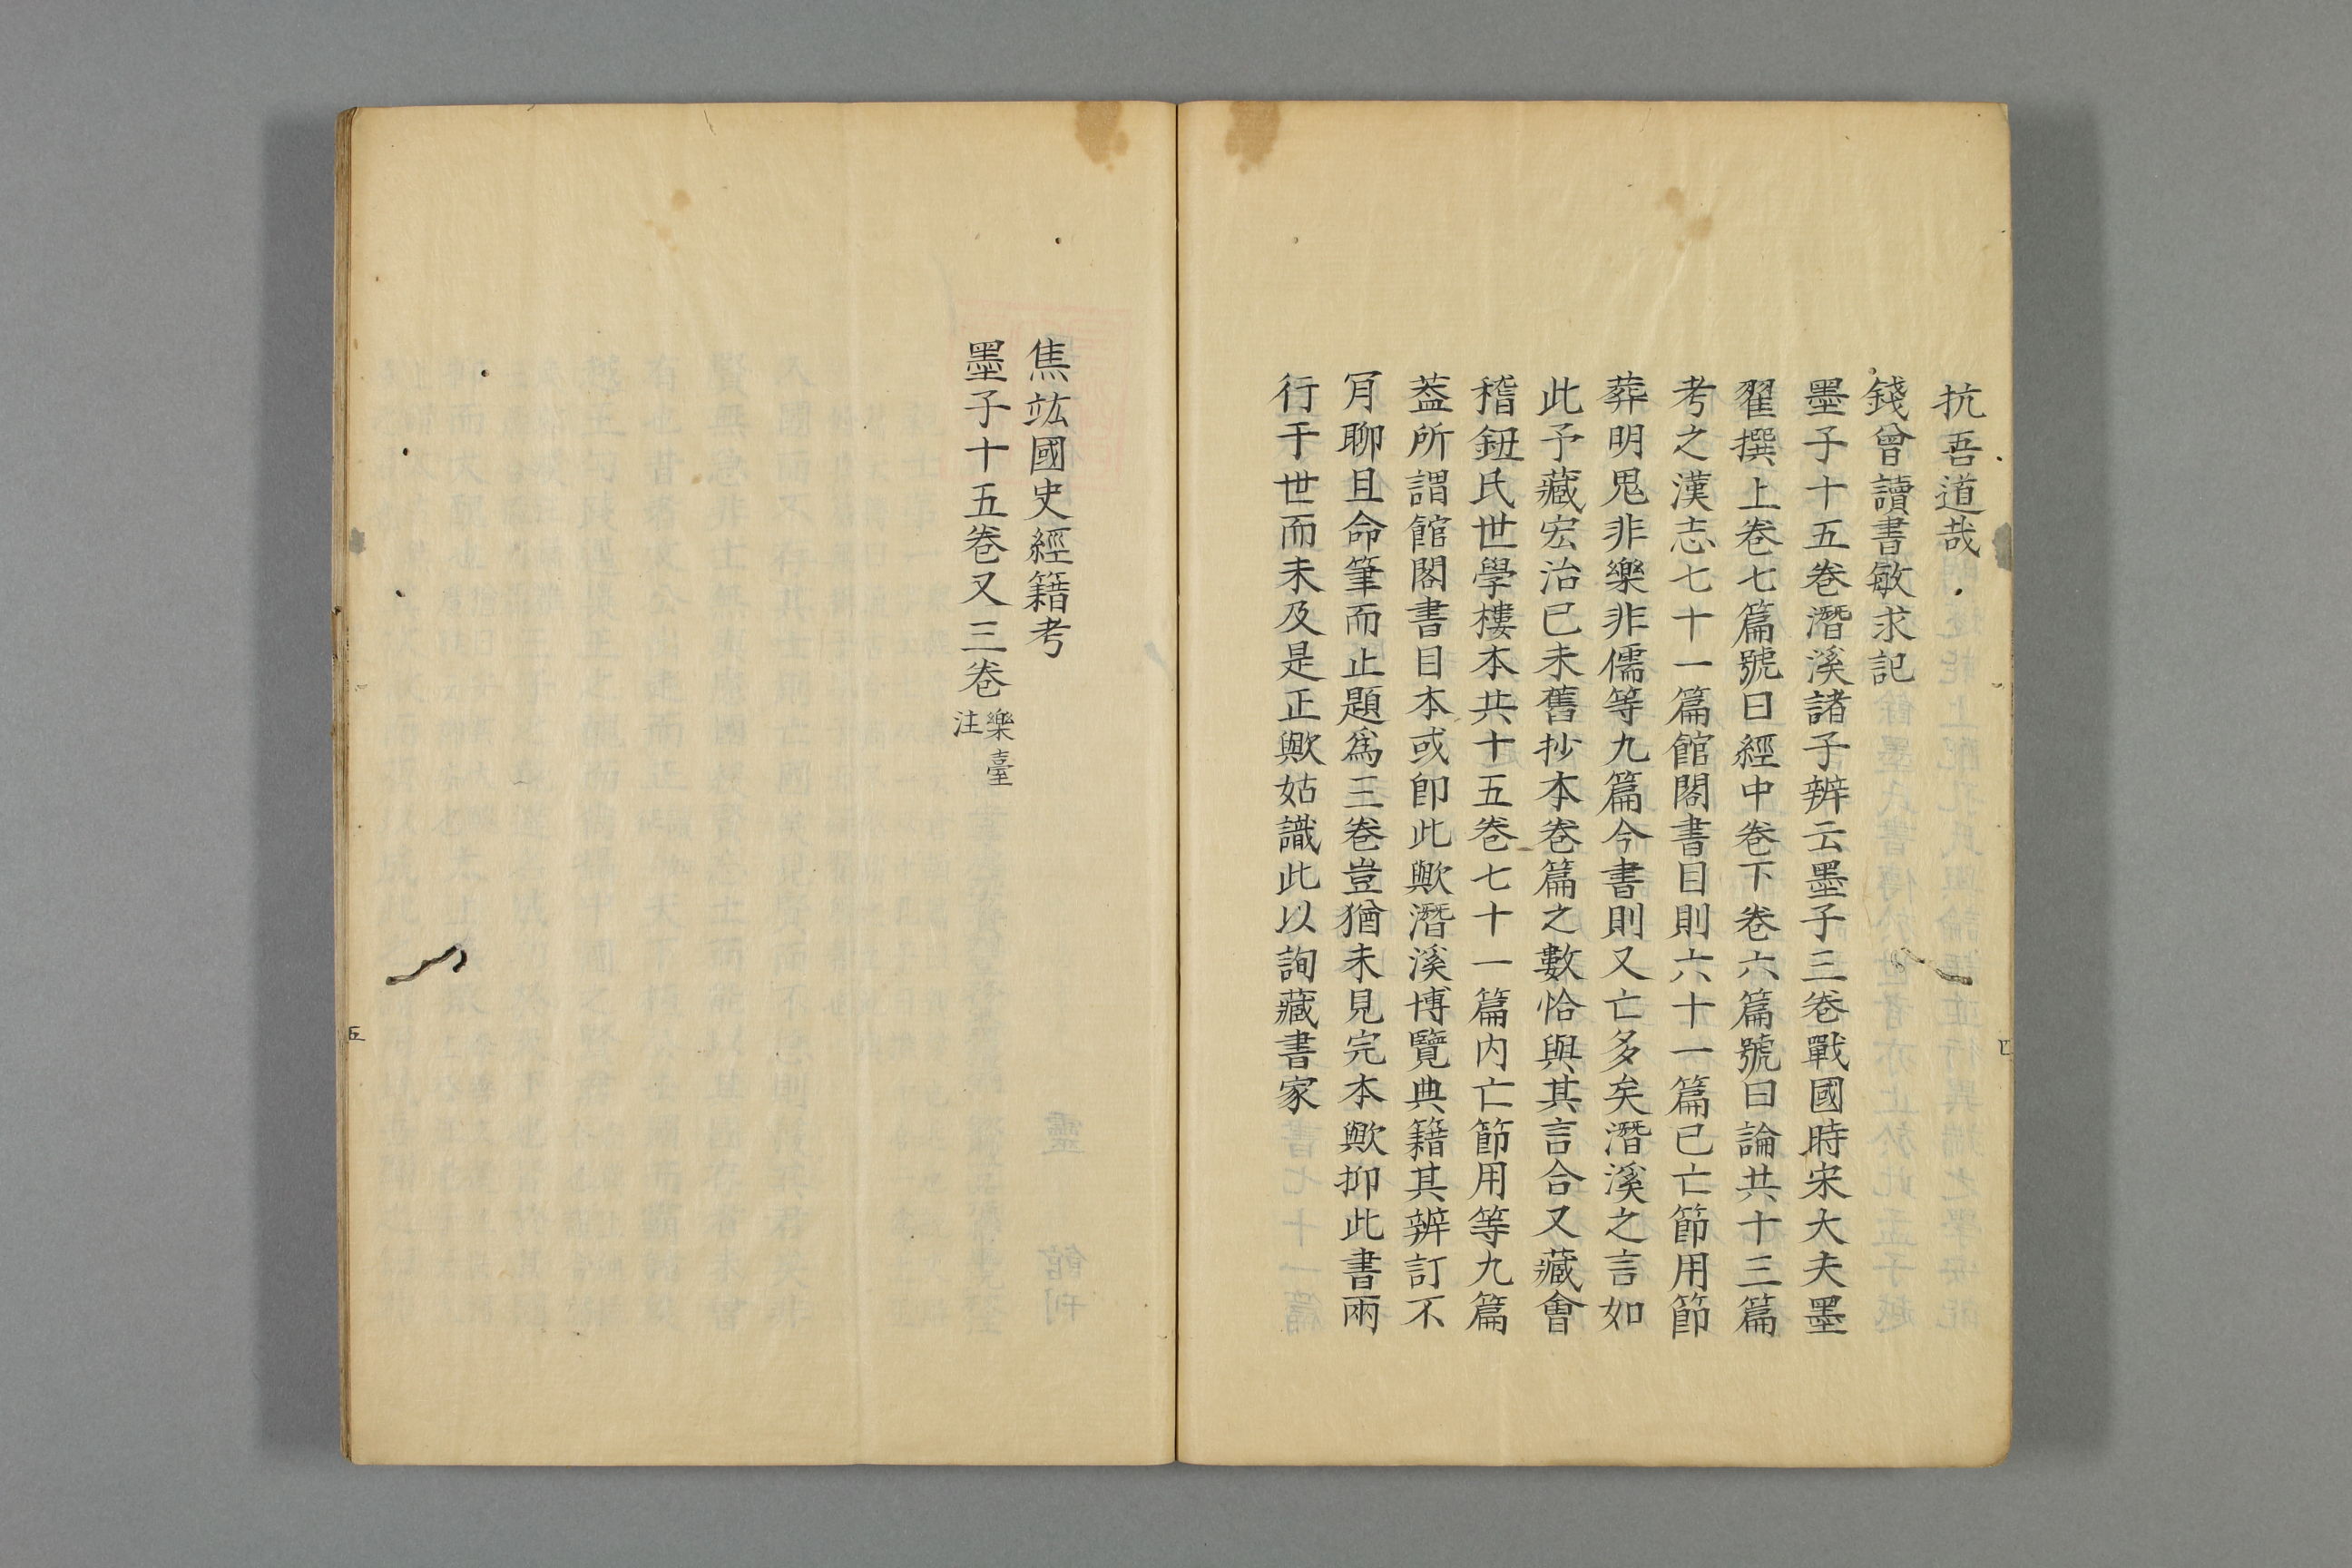 抗吾道哉
錢曾讀書敏求記
墨子十五卷潛溪諸子辨云墨子三卷戰國時宋大夫墨
翟撰上卷七篇號曰經中卷下卷六篇號曰論共十三篇
考之漢志七十一篇館閣書目則六十一篇已亡節用節
葬明鬼非樂非儒等九篇今書則又亡多矣潛溪之言如
此予藏宏治己未舊抄本卷篇之數恰與其言合又藏會
稽鈕氏世學樓本共十五卷七十一篇內亡節用等九篇
葢所謂館閣書目本或卽此歟潛溪博覽典籍其辨訂不
肎聊且命筆而止題爲三卷豈猶未見完本歟抑此書兩
行于世而未及是正歟姑識此以詢藏書家
四
焦竑國史經籍考
墨子十五卷又三卷樂臺
注
五